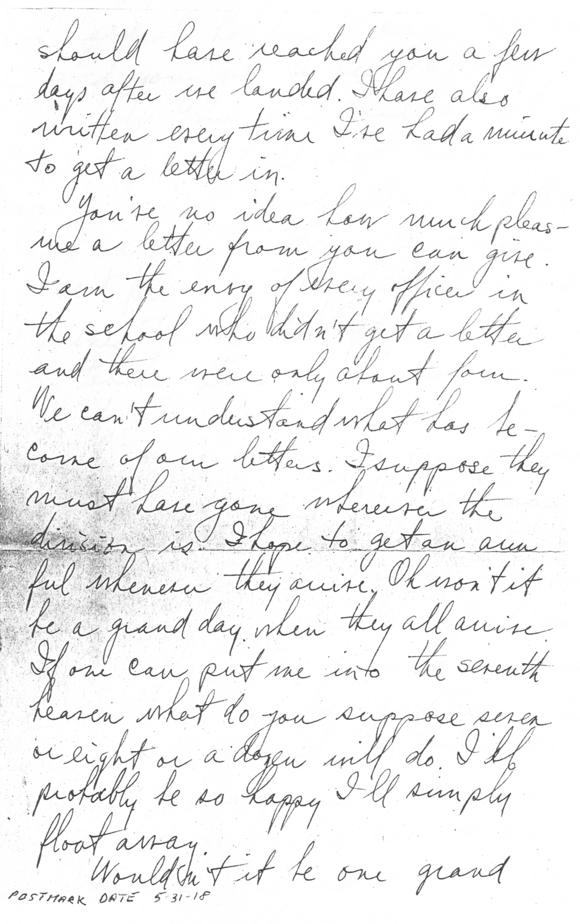 should have reached you a few
days after we landed. I have also
written every time I've had a minute
to get a letter in.
You've no idea how much pleas-
ure a letter from you can give.
I am the envy of every officer in
the school who didn't get a letter
and there were only about four.
We can't understand what has be-
come of our letters. I suppose they
must have gone wherever the
division is. I hope to get an arm
ful whenever they arrive. Oh won't it
be a grand day when they all arrive.
If one can put me into the seventh
heaven what do you suppose seven
or eight or a dozen will do. I'll
probably be so happy I'll simply
float away.
Wouldn't it be one grand
POSTMARK DATE 5-31-18